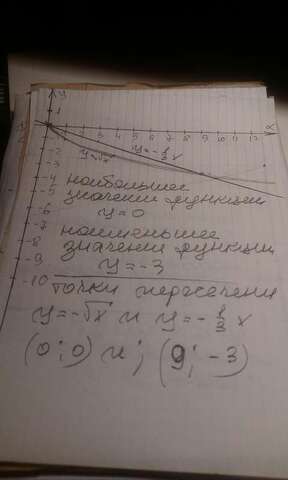 y
1
1 2 3 4 5 6 7 8 9 10 11 12 x
y=-√x y=-1/3 x
-2
-3
-4
-5
-6
-7
-8
-9
-10
наибольшее
значении функции
y=0
наименьшее
значении функции
y=-3
точки пересечени
y=-√x и y=-1/3 x
(0;0) и; (9;-3)